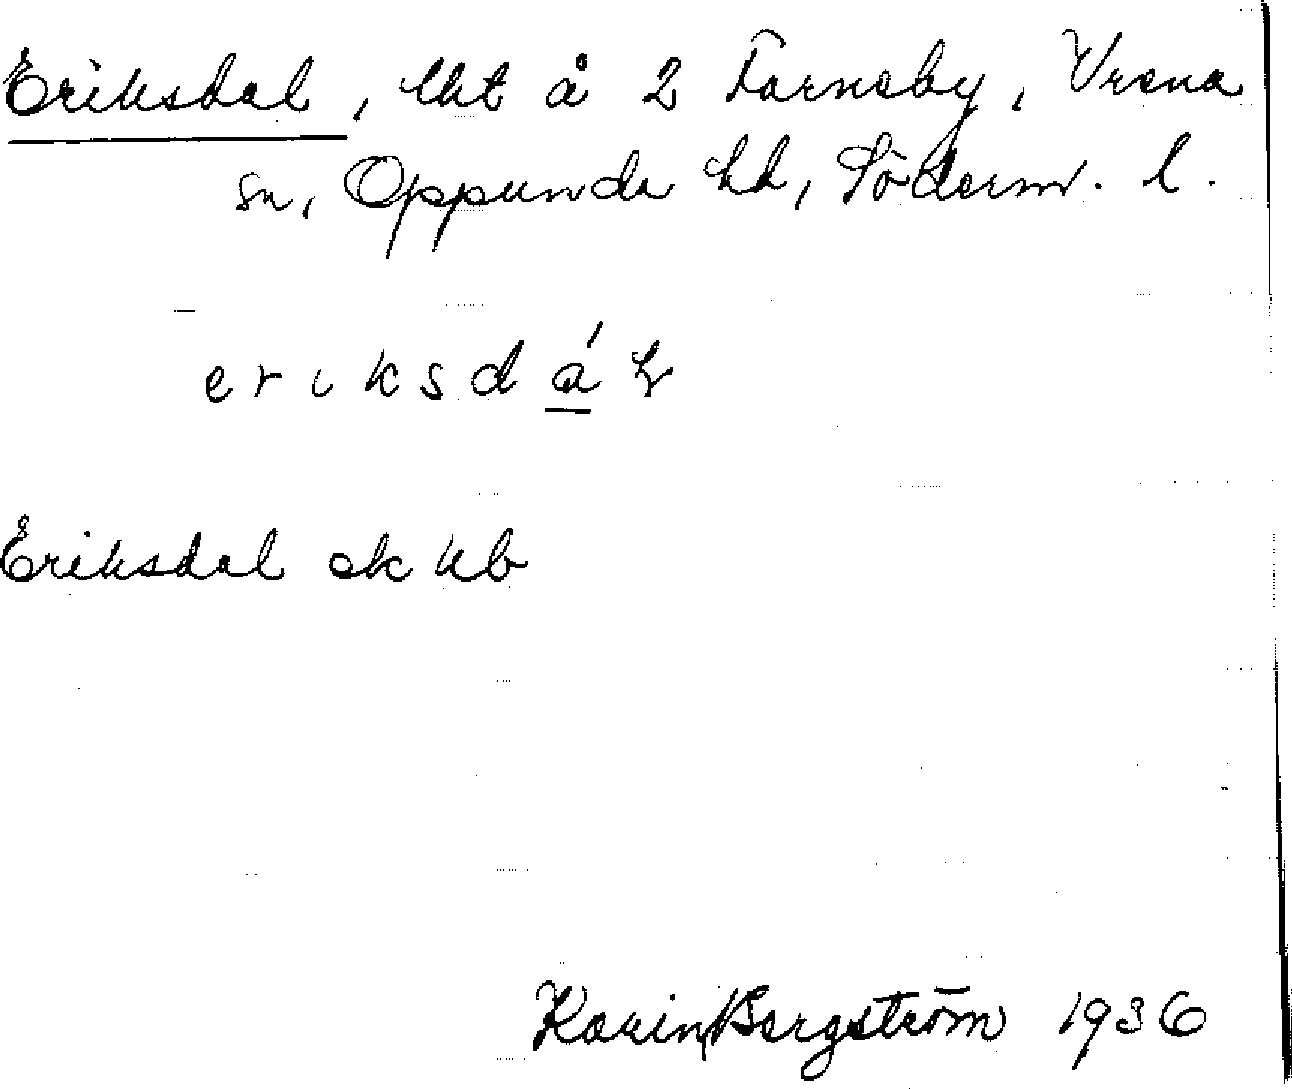 Eriksdal, lht å 2 Tarneby, Vrena
sn, Oppunda hd, Söderm. l.
eriksdáɫ
Eriksdal ek kb
Karin Bergström 1936